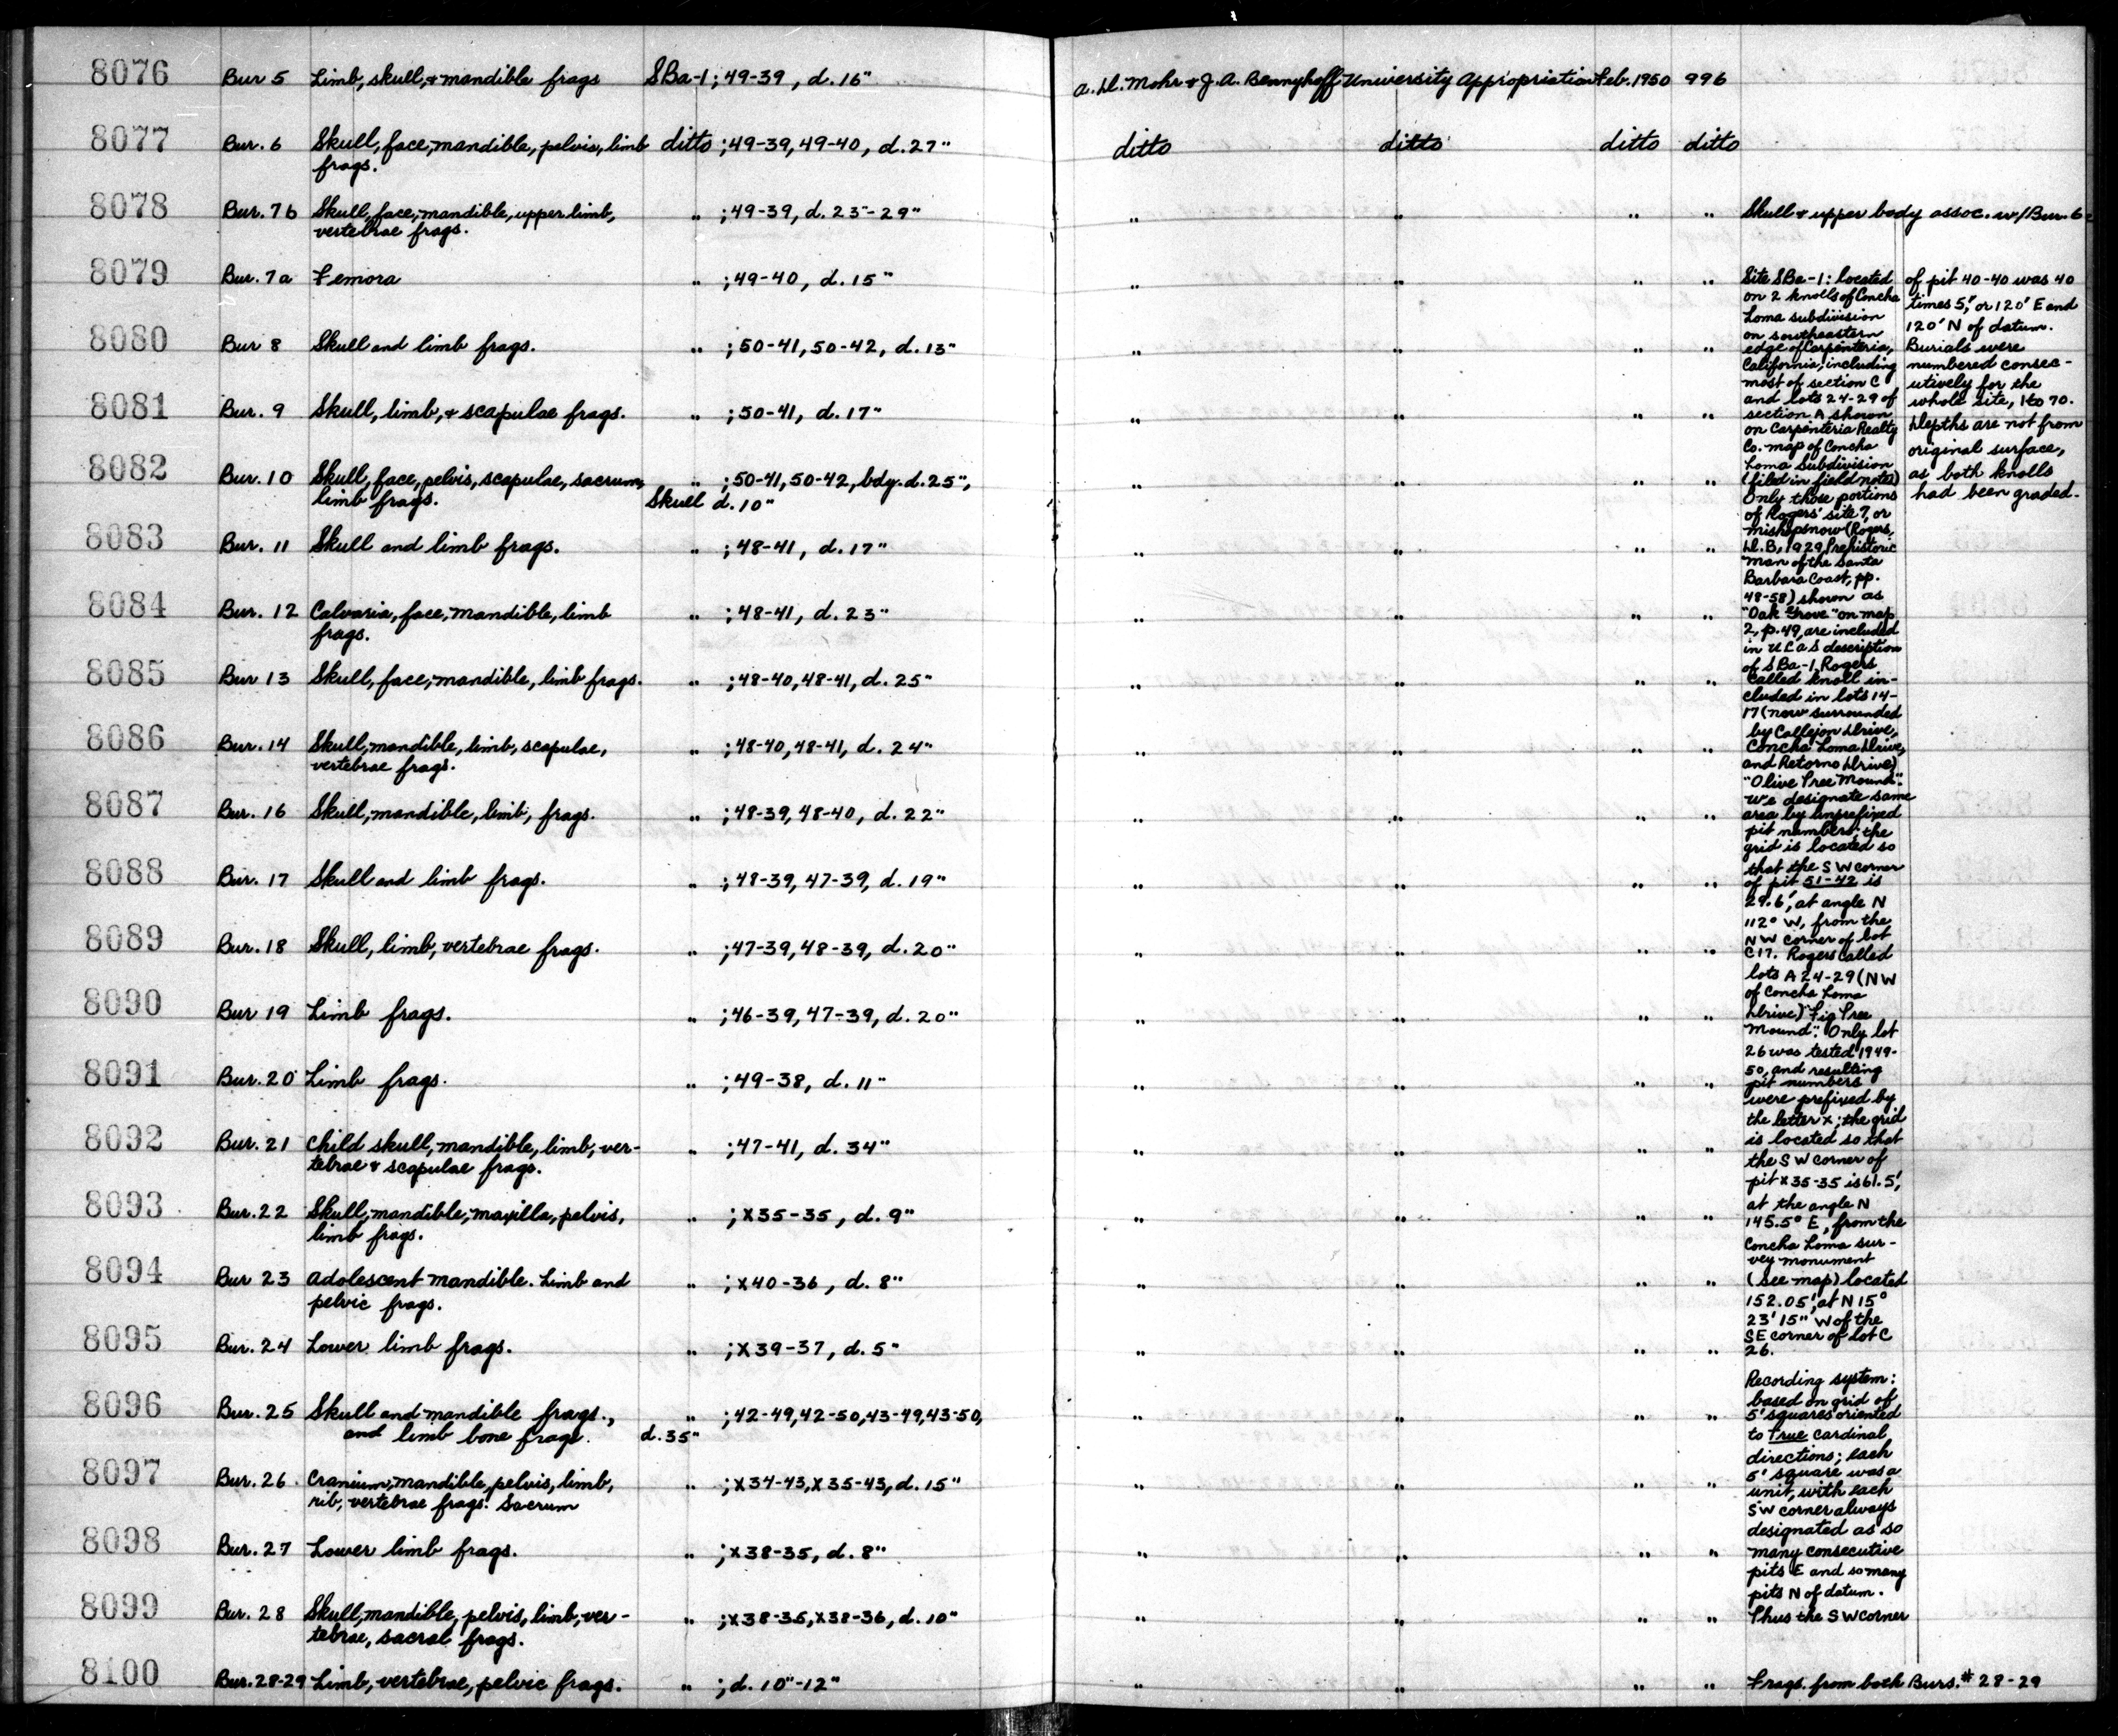 8076 Bur 5 Limb, skull, & mandible frags SBa-1; 49-39, d. 16" A. D. Mohr & J. A. Bennyhoff University Appropriation Feb. 1950 996
8077 Bur. 6 Skull, face, mandible, pelvis, limb ditto ; 49-39, 49-40, d. 27" ditto ditto ditto ditto
frags.
8078 Bur. 7b Skull, face, mandible, upper limb, " ; 49-39, d. 23"-29" " " " " Skull & upper body assoc. w/Bur. 6
vertebrae frags.
8079 Bur. 7a Femora " ; 49-40, d. 15" " " " "
8080 Bur 8 Skull and limb frags. " ; 50-41, 50-42, d. 13" " " " "
8081 Bur. 9 Skull, limb, & scapulae frags. " ; 50-41, d. 17" " " " "
8082 Bur. 10 Skull, face, pelvis, scapulae, sacrum, " ; 50-41, 50-42, bdy. d. 25", " " " "
limb frags. Skull d. 10"
8083 Bur. 11 Skull and limb frags. " ; 48-41, d. 17" " " " "
8084 Bur. 12 Calvaria, face, mandible, limb " ; 48-41, d. 23" " " " "
frags.
8085 Bur 13 Skull, face, mandible, limb frags. " ; 48-40, 48-41, d. 25" " " " "
8086 Bur. 14 Skull, mandible, limb, scapulae, " ; 48-40, 48-41, d. 24" " " " "
vertebrae frags.
8087 Bur. 16 Skull, mandible, limb, frags. " ; 48-39, 48-40, d. 22" " " " "
8088 Bur. 17 Skull and limb frags. " ; 48-39, 47-39, d. 19" " " " "
8089 Bur. 18 Skull, limb, vertebrae frags. " ; 47-39, 48-39, d. 20" " " " "
8090 Bur 19 Limb frags. " ; 46-39, 47-39, d. 20" " " " "
8091 Bur. 20 Limb frags. " ; 49-38, d. 11" " " " "
8092 Bur. 21 Child skull, mandible, limb, ver- " ; 47-41, d. 34" " " " "
tebrae & scapulae frags.
8093 Bur. 22 Skull, mandible, maxilla, pelvis, " ; X35-35, d. 9" " " " "
limb frags.
8094 Bur 23 Adolescent mandible. Limb and " ; X40-36, d. 8" " " " "
pelvic frags.
8095 Bur. 24 Lower limb frags. " ; X39-37, d. 5" " " " "
8096 Bur. 25 Skull and mandible frags., " ; 42-49, 42-50, 43-49, 43-50, " " " "
and limb bone frags. d. 35"
8097 Bur. 26 Cranium, mandible, pelvis, limb, " ; X34-43, X35-43, d. 15" " " " "
rib, vertebrae frags. Sacrum
8098 Bur. 27 Lower limb frags. " ; X38-35, d. 8" " " " "
8099 Bur. 28 Skull, mandible, pelvis, limb, ver- " ; X38-35, X38-36, d. 10" " " " "
tebrae, sacral frags.
8100 Bur. 28-29 Limb, vertebrae, pelvic frags. " ; d. 10"-12" " " " " Frags. from both Burs. # 28-29
Site SBa-1: located
on 2 knolls of Concha
Loma subdivision
on southeastern
edge of Carpenteria,
California, including
most of section C
and lots 24-29 of
section A shown
on Carpenteria Realty
Co. map of Concha
Loma Subdivision
(filed in field notes)
Only those portions
of Rogers' site 7, or
Mishopsnow (Rogers,
D. B., 1929, Prehistoric
Man of the Santa
Barbara Coast, pp.
48-58) shown as
"Oak Grove" on map
2, p. 49, are included
in UCAS description
of SBa-1. Rogers
called knoll in-
cluded in lots 14-
17 (now surrounded
by Callejon Drive,
Concha Loma Drive,
and Retorno Drive)
"Olive Tree Mound".
We designate same
area by unprefixed
pit numbers; the
grid is located so
that the SW corner
of pit 51-42 is
29.6', at angle N
112° W, from the
NW corner of lot
C17. Rogers called
lots A 24-29 (NW
of Concha Loma
Drive) "Fig Tree
Mound". Only lot
26 was tested 1949-
50, and resulting
pit numbers
were prefixed by
the letter X; the grid
is located so that
the SW corner of
pit X35-35 is 61.5',
at the angle N
145.5° E, from the
Concha Loma sur-
vey monument
(see map) located
152.05', at N 15°
23' 15" W of the
SE corner of lot C
26.
Recording system:
based on grid of
5' squares oriented
to True cardinal
directions; each
5' square was a
unit, with each
SW corner always
designated as so
many consecutive
pits E and so many
pits N of datum.
Thus the SW corner
of pit 40-40 was 40
times 5', or 120' E and
120' N of datum.
Burials were
numbered consec-
utively for the
whole site, 1 to 70.
Depths are not from
original surface,
as both knolls
had been graded.